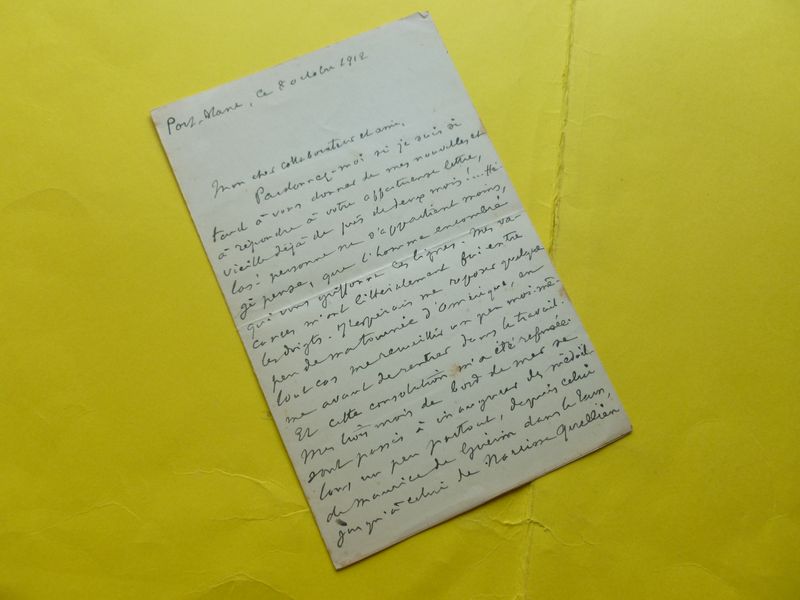 Port-Blanc, ce 8 octobre 1912
Mon cher collaborateur et ami,
Pardonnez-moi si je suis si
tard à vous donner de mes nouvelles et
à répondre à votre affectueuse lettre,
vieille déjà de près de deux mois!... Hé-
las! personne ne s'appartient moins,
je pense, que l'homme encombré
qui vous griffonne ces lignes. Mes va-
cances m'ont littéralement fui entre
les doigts. J'espérais me reposer quelque
peu de ma tournée d'Amérique, en
tout cas me recueillir un peu moi-mê-
me avant de rentrer dans le travail.
Et cette consolation m'a été refusée.
Mes trois mois de bord de mer se
sont passés à inaugurer des médail-
lons, un peu partout, depuis celui
de Maurice de Guérin dans le Tarn,
jusqu'à celui de Narcisse Quellien